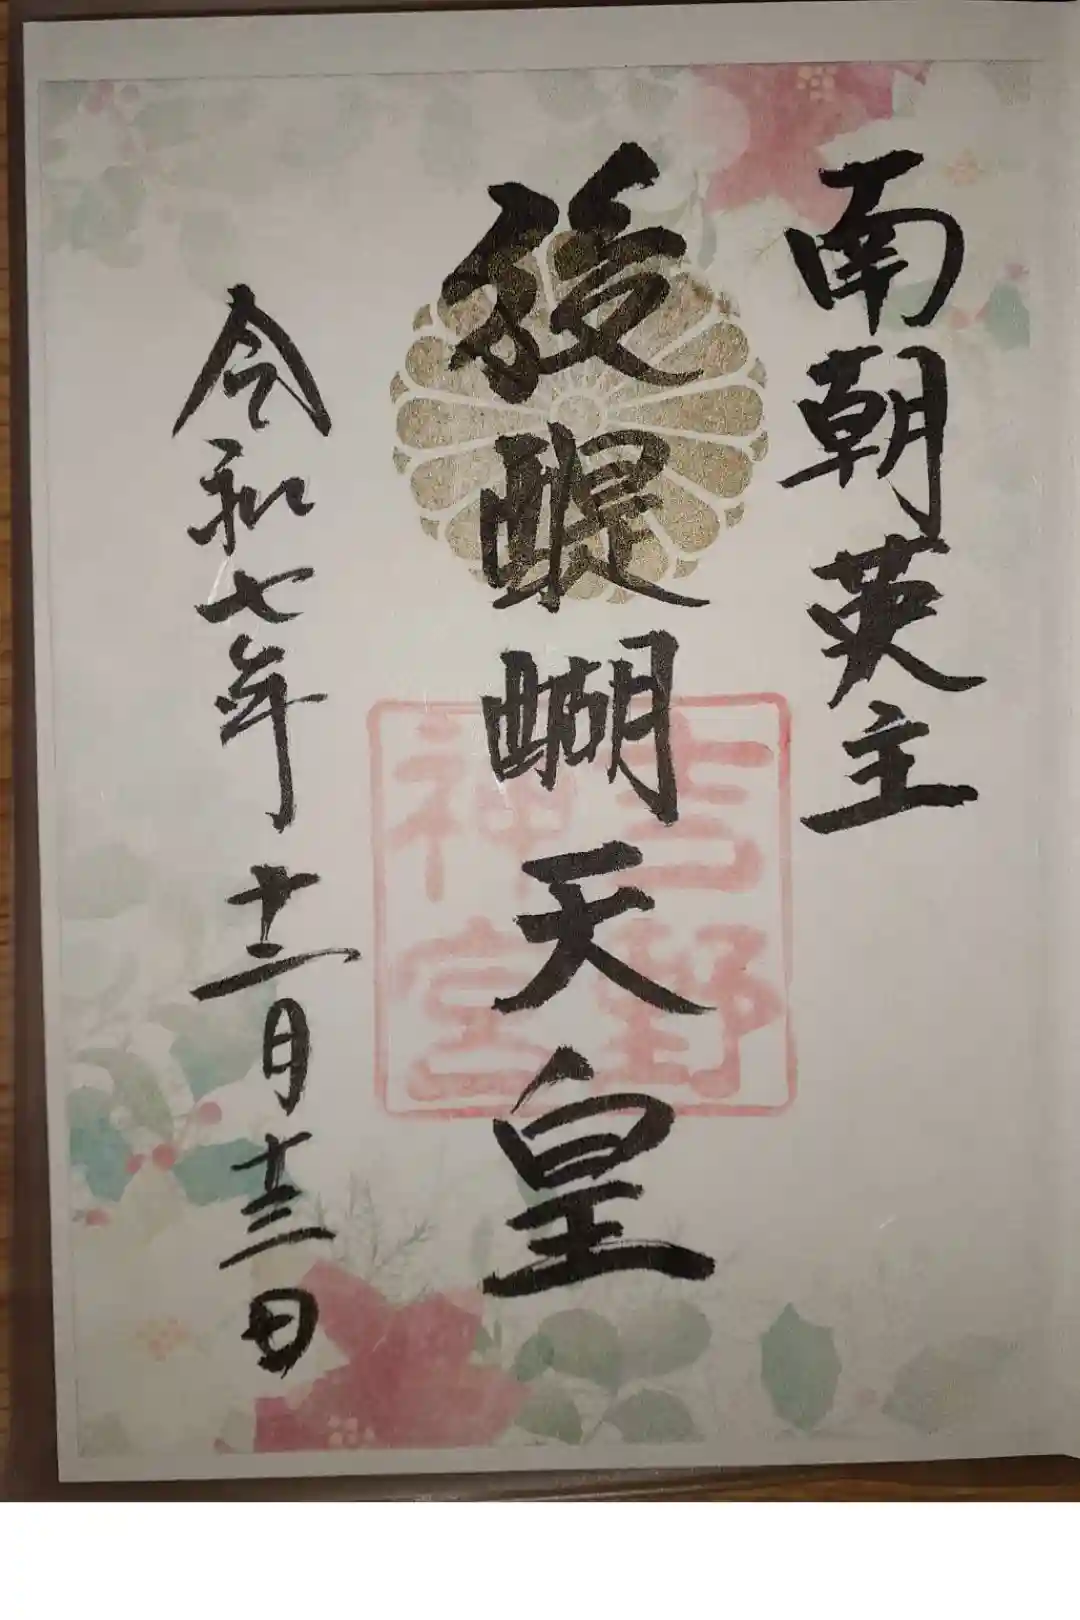 南朝英主
後醍醐天皇
吉野
神宮
令和七年十二月十三日